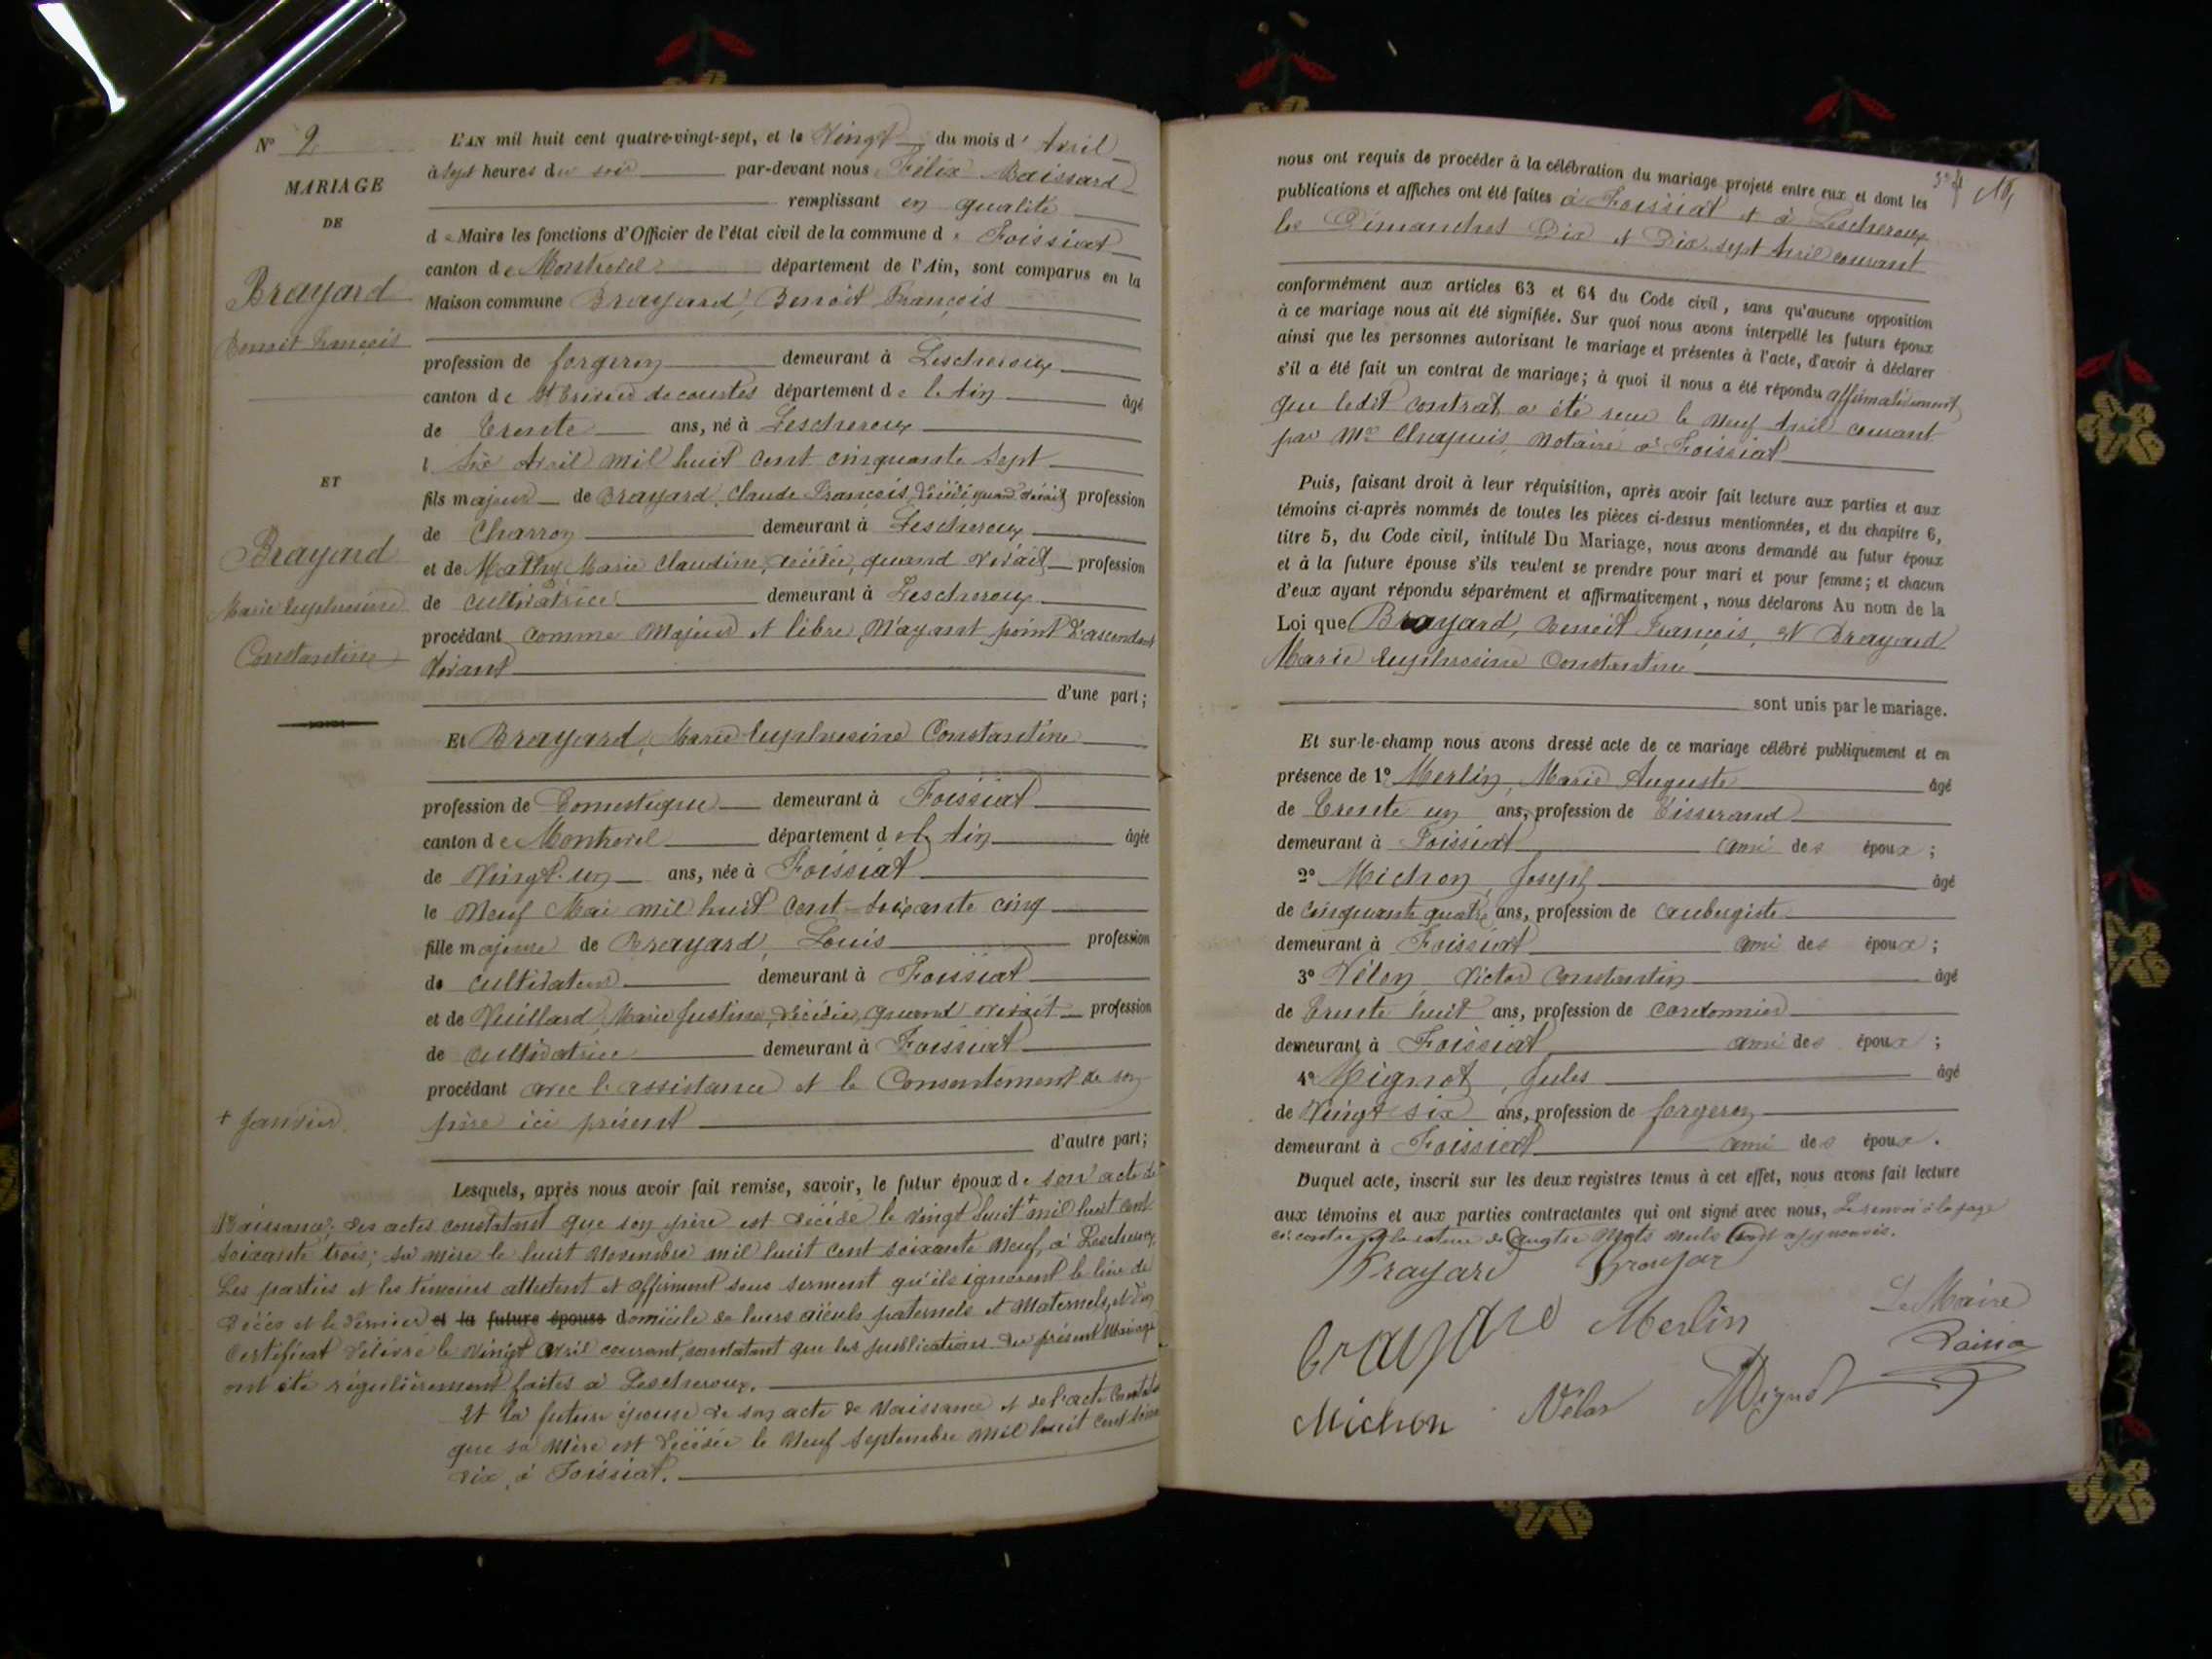 N° 9
MARIAGE
DE
Brayard
Benoit François
ET
Brayard
Marie Euphrosine
Constantine
+ Janvier
L'AN mil huit cent quatre-vingt-sept, et le Vingt du mois d' Avril
à Sept heures du soir par-devant nous Félix
remplissant en qualité
de Maire les fonctions d'Officier de l'état civil de la commune de Foissiat
canton de Montrevel département de l'Ain, sont comparus en la
Maison commune Brayard, Benoit François
profession de forgeron demeurant à Lescheroux
canton de St Trivier de courtes département de l'Ain âgé
de Trente ans, né à Lescheroux
l Six Avril mil huit cent cinquante sept
fils majeur de Brayard, Claude François, décédé quand vivait profession
de Charron demeurant à Lescheroux
et de Mathy Marie Claudine, décédée, quand vivait profession
de cultivatrice demeurant à Lescheroux
procédant comme Majeur et libre, N'ayant point d'ascendant
Vivant
d'une part;
Et Brayard, Marie Euphrosine Constantine
profession de Domestique demeurant à Foissiat
canton de Montrevel département de l'Ain âgée
de Vingt-un ans, née à Foissiat
le Neuf Mai mil huit cent soixante cinq
fille majeure de Brayard, Louis profession
de cultivateur demeurant à Foissiat
et de Vuillard, Marie Justine, décédée, quand vivait profession
de cultivatrice demeurant à Foissiat
procédant avec l'assistance et le Consentement de son
père ici présent
d'autre part;
Lesquels, après nous avoir fait remise, savoir, le futur époux de son acte de
Naissance; des actes constatant que son père est décédé le vingt huit + mil huit cent
soixante trois; sa mère le huit Novembre mil huit cent soixante Neuf, à Lescheroux
Les parties et les témoins attestent et affirment sous serment qu'ils ignorent le lieu de
décès et le dernier et la future épouse domicile de leurs aïeuls paternels et Maternels, et d'un
Certificat délivré le vingt avril courant, constatant que les publications du présent Mariage
ont été régulièrement faites à Lescheroux.
Et la future épouse de son acte de Naissance et de l'acte
que sa Mère est décédée le Neuf Septembre mil huit cent
dix, à Foissiat.
nous ont requis de procéder à la célébration du mariage projeté entre eux et dont les
publications et affiches ont été faites à Foissiat et à Lescheroux
les Dimanches Dix et Dix sept Avril courant
conformément aux articles 63 et 64 du Code civil, sans qu'aucune opposition
à ce mariage nous ait été signifiée. Sur quoi nous avons interpellé les futurs époux
ainsi que les personnes autorisant le mariage et présentes à l'acte, d'avoir à déclarer
s'il a été fait un contrat de mariage; à quoi il nous a été répondu affirmativement
que ledit contrat a été reçu le Neuf Avril courant
par Me Chapuis Notaire à Foissiat
Puis, faisant droit à leur réquisition, après avoir fait lecture aux parties et aux
témoins ci-après nommés de toutes les pièces ci-dessus mentionnées, et du chapitre 6,
titre 5, du Code civil, intitulé Du Mariage, nous avons demandé au futur époux
et à la future épouse s'ils veulent se prendre pour mari et pour femme; et chacun
d'eux ayant répondu séparément et affirmativement, nous déclarons Au nom de la
Loi que Brayard, Benoit François, et Brayard
Marie Euphrosine Constantine
sont unis par le mariage.
Et sur-le-champ nous avons dressé acte de ce mariage célébré publiquement et en
présence de 1° Merlin, Marie Auguste âgé
de Trente un ans, profession de Tisserand
demeurant à Foissiat ami des époux;
2° Michon, Joseph âgé
de cinquante quatre ans, profession de aubergiste
demeurant à Foissiat ami des époux;
3° Vélon, Victor Constantin âgé
de Trente huit ans, profession de cordonnier
demeurant à Foissiat ami des époux;
4° Mignot, Jules âgé
de Vingt six ans, profession de forgeron
demeurant à Foissiat ami des époux.
Duquel acte, inscrit sur les deux registres tenus à cet effet, nous avons fait lecture
aux témoins et aux parties contractantes qui ont signé avec nous, Le renvoi à la page
ci contre et la rature de Quatre Mots nuls sont approuvés.
Brayard Brayar
brayard Merlin Le Maire
Michon Vélon Mignot